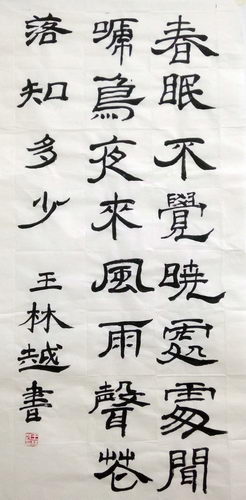 春眠不覺曉處處聞
嗁鳥夜來風雨聲花
落知多少
王林越書